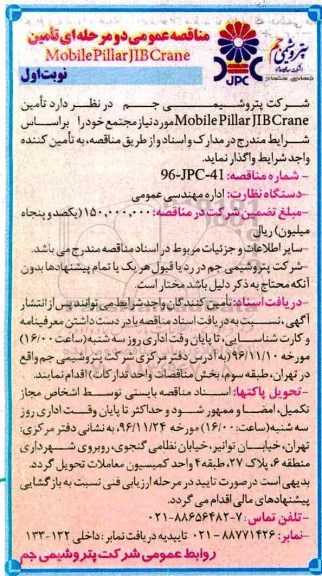 پتروشیمی جم
JPC
مناقصه عمومی دو مرحله ای تأمین
Mobile Pillar JIB Crane
نوبت اول
شرکت پتروشیمی جم در نظر دارد تأمین
Mobile Pillar JIB Crane مورد نیاز مجتمع خود را براساس
شرایط مندرج در مدارک و اسناد و از طریق مناقصه، به تأمین کننده
واجد شرایط واگذار نماید.
- شماره مناقصه: 96-JPC-41
- دستگاه نظارت: اداره مهندسی عمومی
- مبلغ تضمین شرکت در مناقصه: ۱۵۰,۰۰۰,۰۰۰ (یکصد و پنجاه
میلیون) ریال
- سایر اطلاعات و جزئیات مربوط در اسناد مناقصه مندرج می باشد.
- شرکت پتروشیمی جم در رد یا قبول هر یک یا تمام پیشنهادها بدون
آنکه محتاج به ذکر دلیل باشد مختار است.
- دریافت اسناد: تأمین کنندگان واجد شرایط می توانند پس از انتشار
آگهی، نسبت به دریافت اسناد مناقصه با در دست داشتن معرفینامه
و کارت شناسایی، تا پایان وقت اداری روز سه شنبه (ساعت ۱۶/۰۰)
مورخه ۹۶/۱۱/۱۰ (به آدرس دفتر مرکزی شرکت پتروشیمی جم واقع
در تهران، طبقه سوم بخش مناقصات واحد تدارکات) اقدام نمایند.
- تحویل پاکتها: اسناد مناقصه بایستی توسط اشخاص مجاز
تکمیل، امضا و ممهور شود و حداکثر تا پایان وقت اداری روز
سه شنبه (ساعت: ۱۶/۰۰) مورخه ۹۶/۱۱/۲۴، به نشانی دفتر مرکزی:
تهران، خیابان توانیر، خیابان نظامی گنجوی، روبروی شهرداری
منطقه ۶، پلاک ۲۷، طبقه ۴ واحد کمیسیون معاملات تحویل گردد.
بدیهی است در صورت تایید در مرحله ارزیابی فنی نسبت به بازگشایی
پیشنهادهای مالی اقدام می گردد.
- تلفن تماس: ۷-۸۸۶۵۶۴۸۲-۰۲۱
- نمابر: ۸۸۷۷۱۴۲۶ - ۰۲۱ تاییدیه دریافت نمابر: داخلی ۱۳۲-۱۳۳
روابط عمومی شرکت پتروشیمی جم